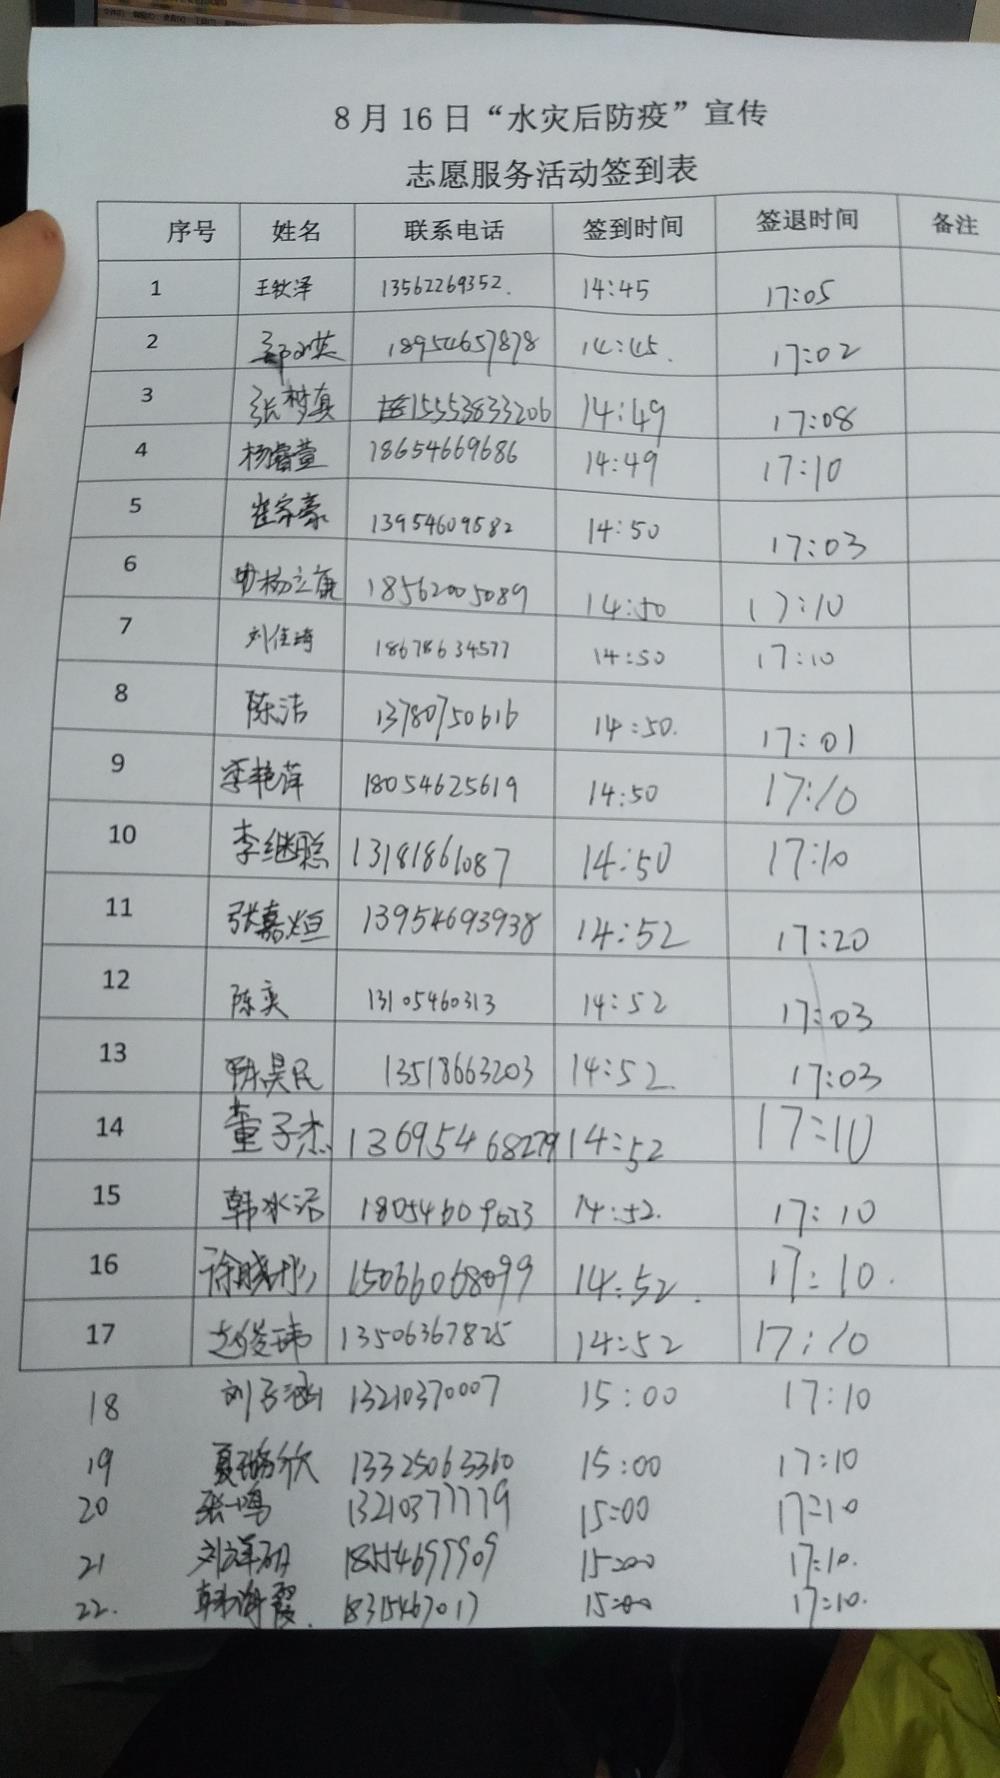 8月16日“水灾后防疫”宣传
志愿服务活动签到表
序号 姓名 联系电话 签到时间 签退时间 备注
1 王钦泽 13562269352. 14:45 17:05
2 18954657878 14:45. 17:02
3 张梦真 15553833206 14:49 17:08
4 杨睿萱 18654669686 14:49 17:10
5 崔家豪 13954609582 14:50 17:03
6 杨立康 18562005089 14:50 17:10
7 刘佳琦 18678634577 14:50 17:10
8 陈洁 13780750616 14:50. 17:01
9 李艳萍 18054625619 14:50 17:10
10 李继聪 13181861087 14:50 17:10
11 张嘉烜 13954693938 14:52 17:20
12 陈奕 13105460313 14:52 17:03
13 陈昊民 13518663203 14:52. 17:03
14 董子杰 13695468279 14:52 17:10
15 韩冰洁 18054609653 14:52. 17:10
16 徐晓彤 15066068099 14:52. 17:10.
17 赵俊玮 13506367825 14:52 17:10
18 刘子涵 13210370007 15:00 17:10
19 夏璐欣 13325063360 15:00 17:10
20 张一鸣 13210377779 15:00 17:10
21 18554699909 15:00 17:10.
22. 韩海霞. 18315467017 15:00 17:10.